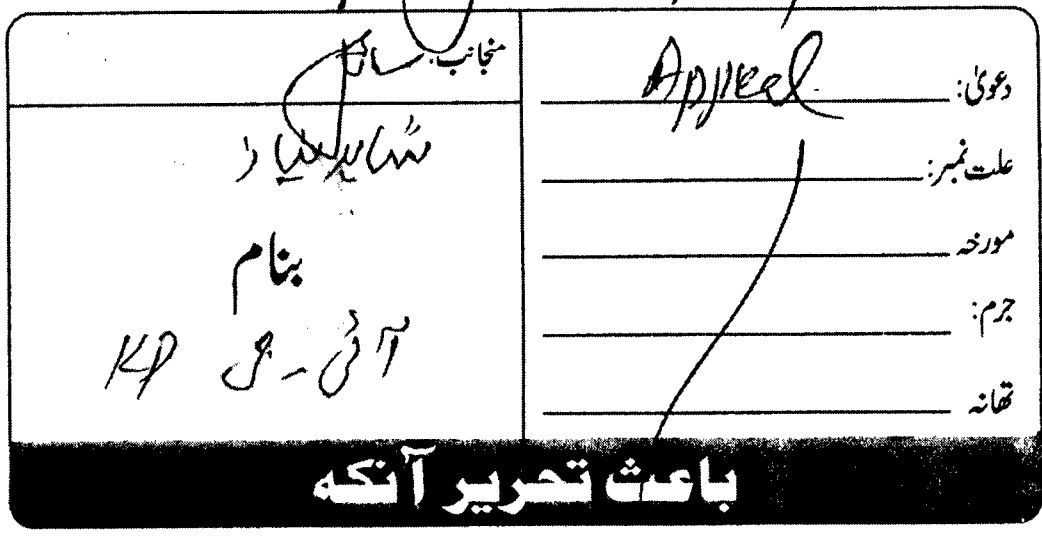 دعویٰ: Appeal
علت نمبر:
مورخہ
جرم:
تھانہ
منجانب: سائل
بنام
آئی - جی KP
باعث تحریر آنکہ